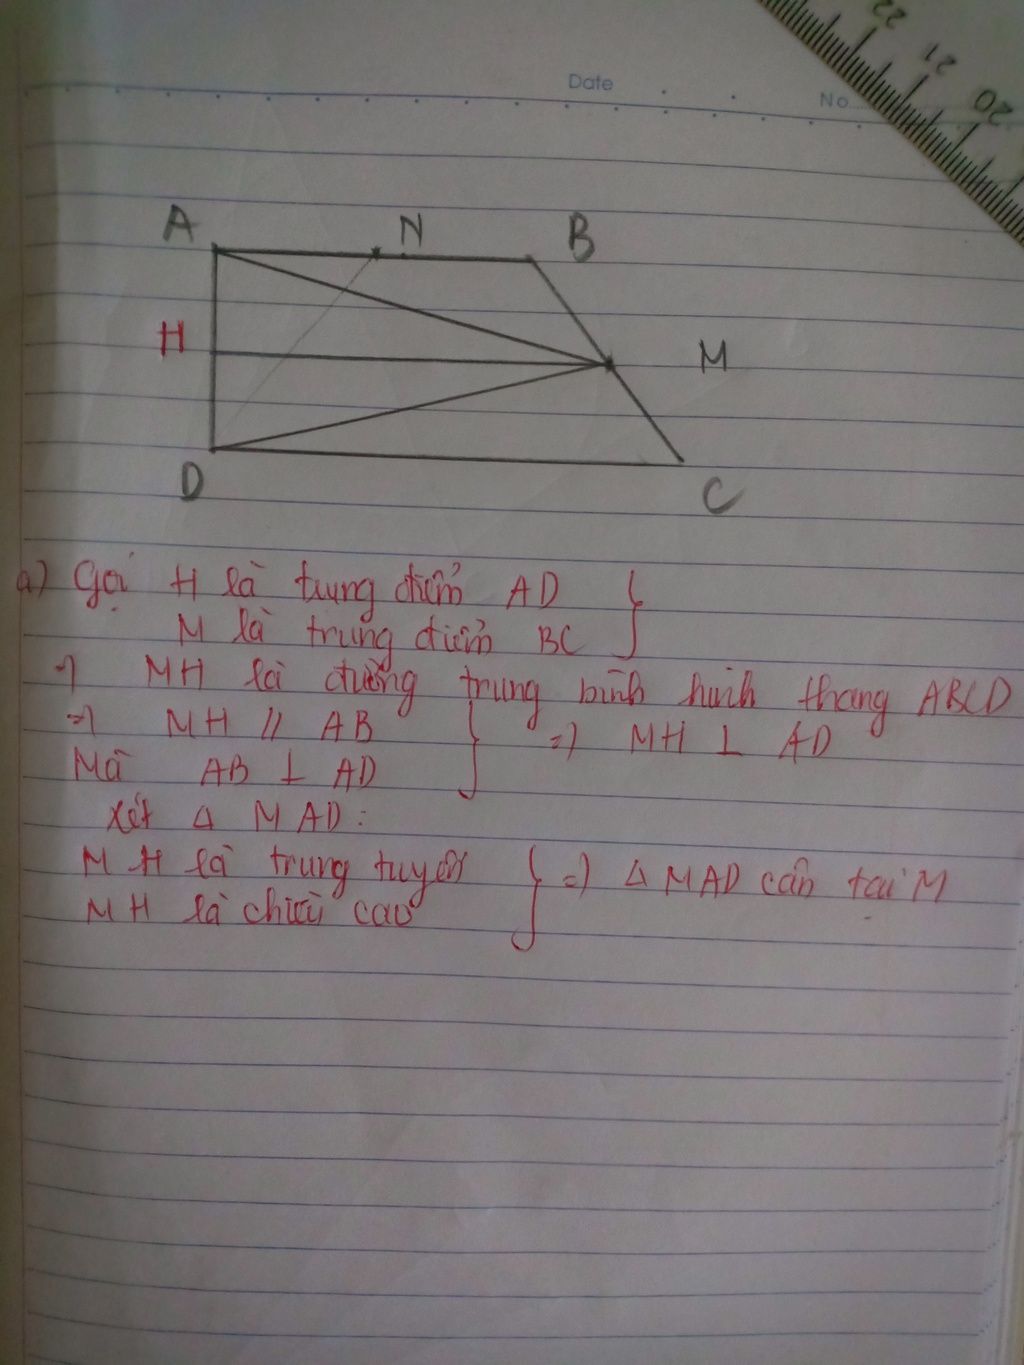 22
21
20
Date
No
A N B
H M
D C
a) Gọi H là trung điểm AD
M là trung điểm BC
=> MH là đường trung bình hình thang ABCD
=> MH // AB => MH ⊥ AD
Mà AB ⊥ AD
xét Δ MAD:
MH là trung tuyến => Δ MAD cân tại M
MH là chiều cao